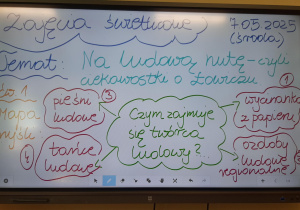 Zajęcia świetlicowe
7.05.2025
(środa)
Temat: Na ludową nutę – czyli
ciekawostki o Łowiczu
Ćw. 1
Mapa
myśli
pieśni
ludowe
3
Czym zajmuje
się twórca
ludowy?...
1
wycinanka
z papieru
4
tańce
ludowe
ozdoby
ludowe
regionalne